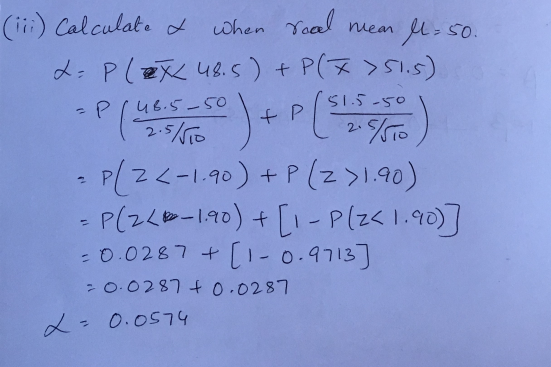 (iii) Calculate α when real mean μ = 50.
α = P(x̄ < 48.5) + P(x̄ > 51.5)
= P((48.5 - 50)/(2.5/√10)) + P((51.5 - 50)/(2.5/√10))
= P(Z < -1.90) + P(Z > 1.90)
= P(Z < -1.90) + [1 - P(Z < 1.90)]
= 0.0287 + [1 - 0.9713]
= 0.0287 + 0.0287
α = 0.0574